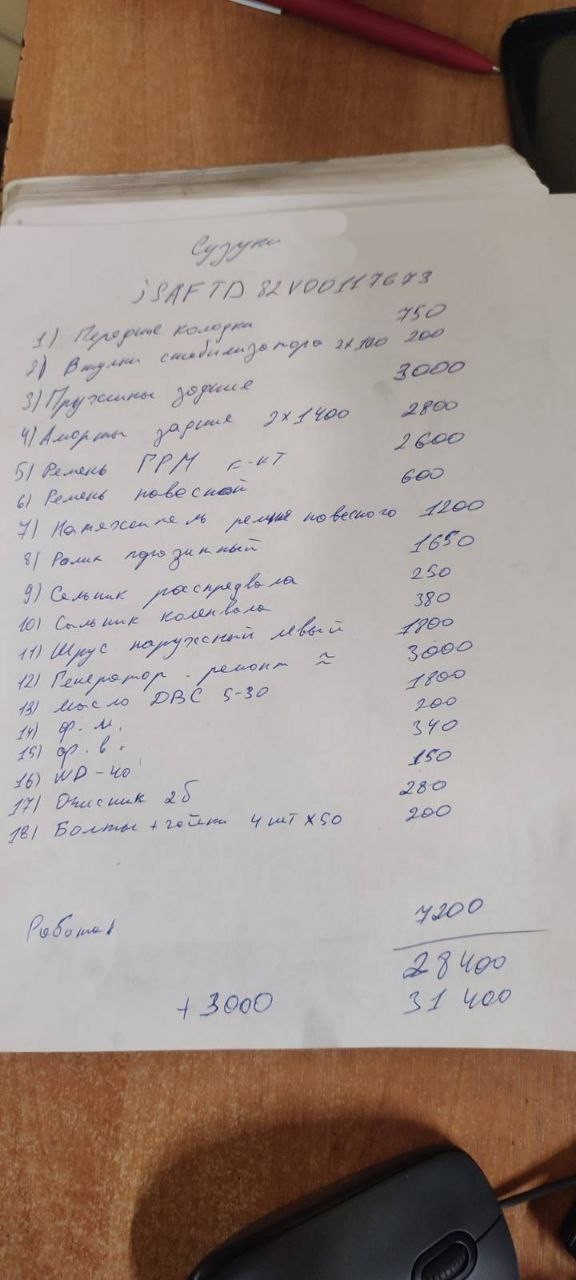 Сузуки
jSAFTD 82V00117673
1) Передние колодки 750
2) Втулки стабилизатора 2х100 200
3) Пружины задние 3000
4) Аморты задние 2х1400 2800
5) Ремень ГРМ к-кт 2600
6) Ремень навесной 600
7) Натяжитель ремня навесного 1200
8) Ролик 1650
9) Сельник распредвала 250
10) Сельник коленвала 380
11) Шрус наружный левый 1800
12) Генератор - ремонт ≈ 3000
13) Масло ДВС 5-30 1800
14) ф. м. 200
15) ф. в. 340
16) WD-40 150
17) Очисник 2б 280
18) Болты + гайки 4 шт х 50 200
Работа 7200
28400
+3000 31400